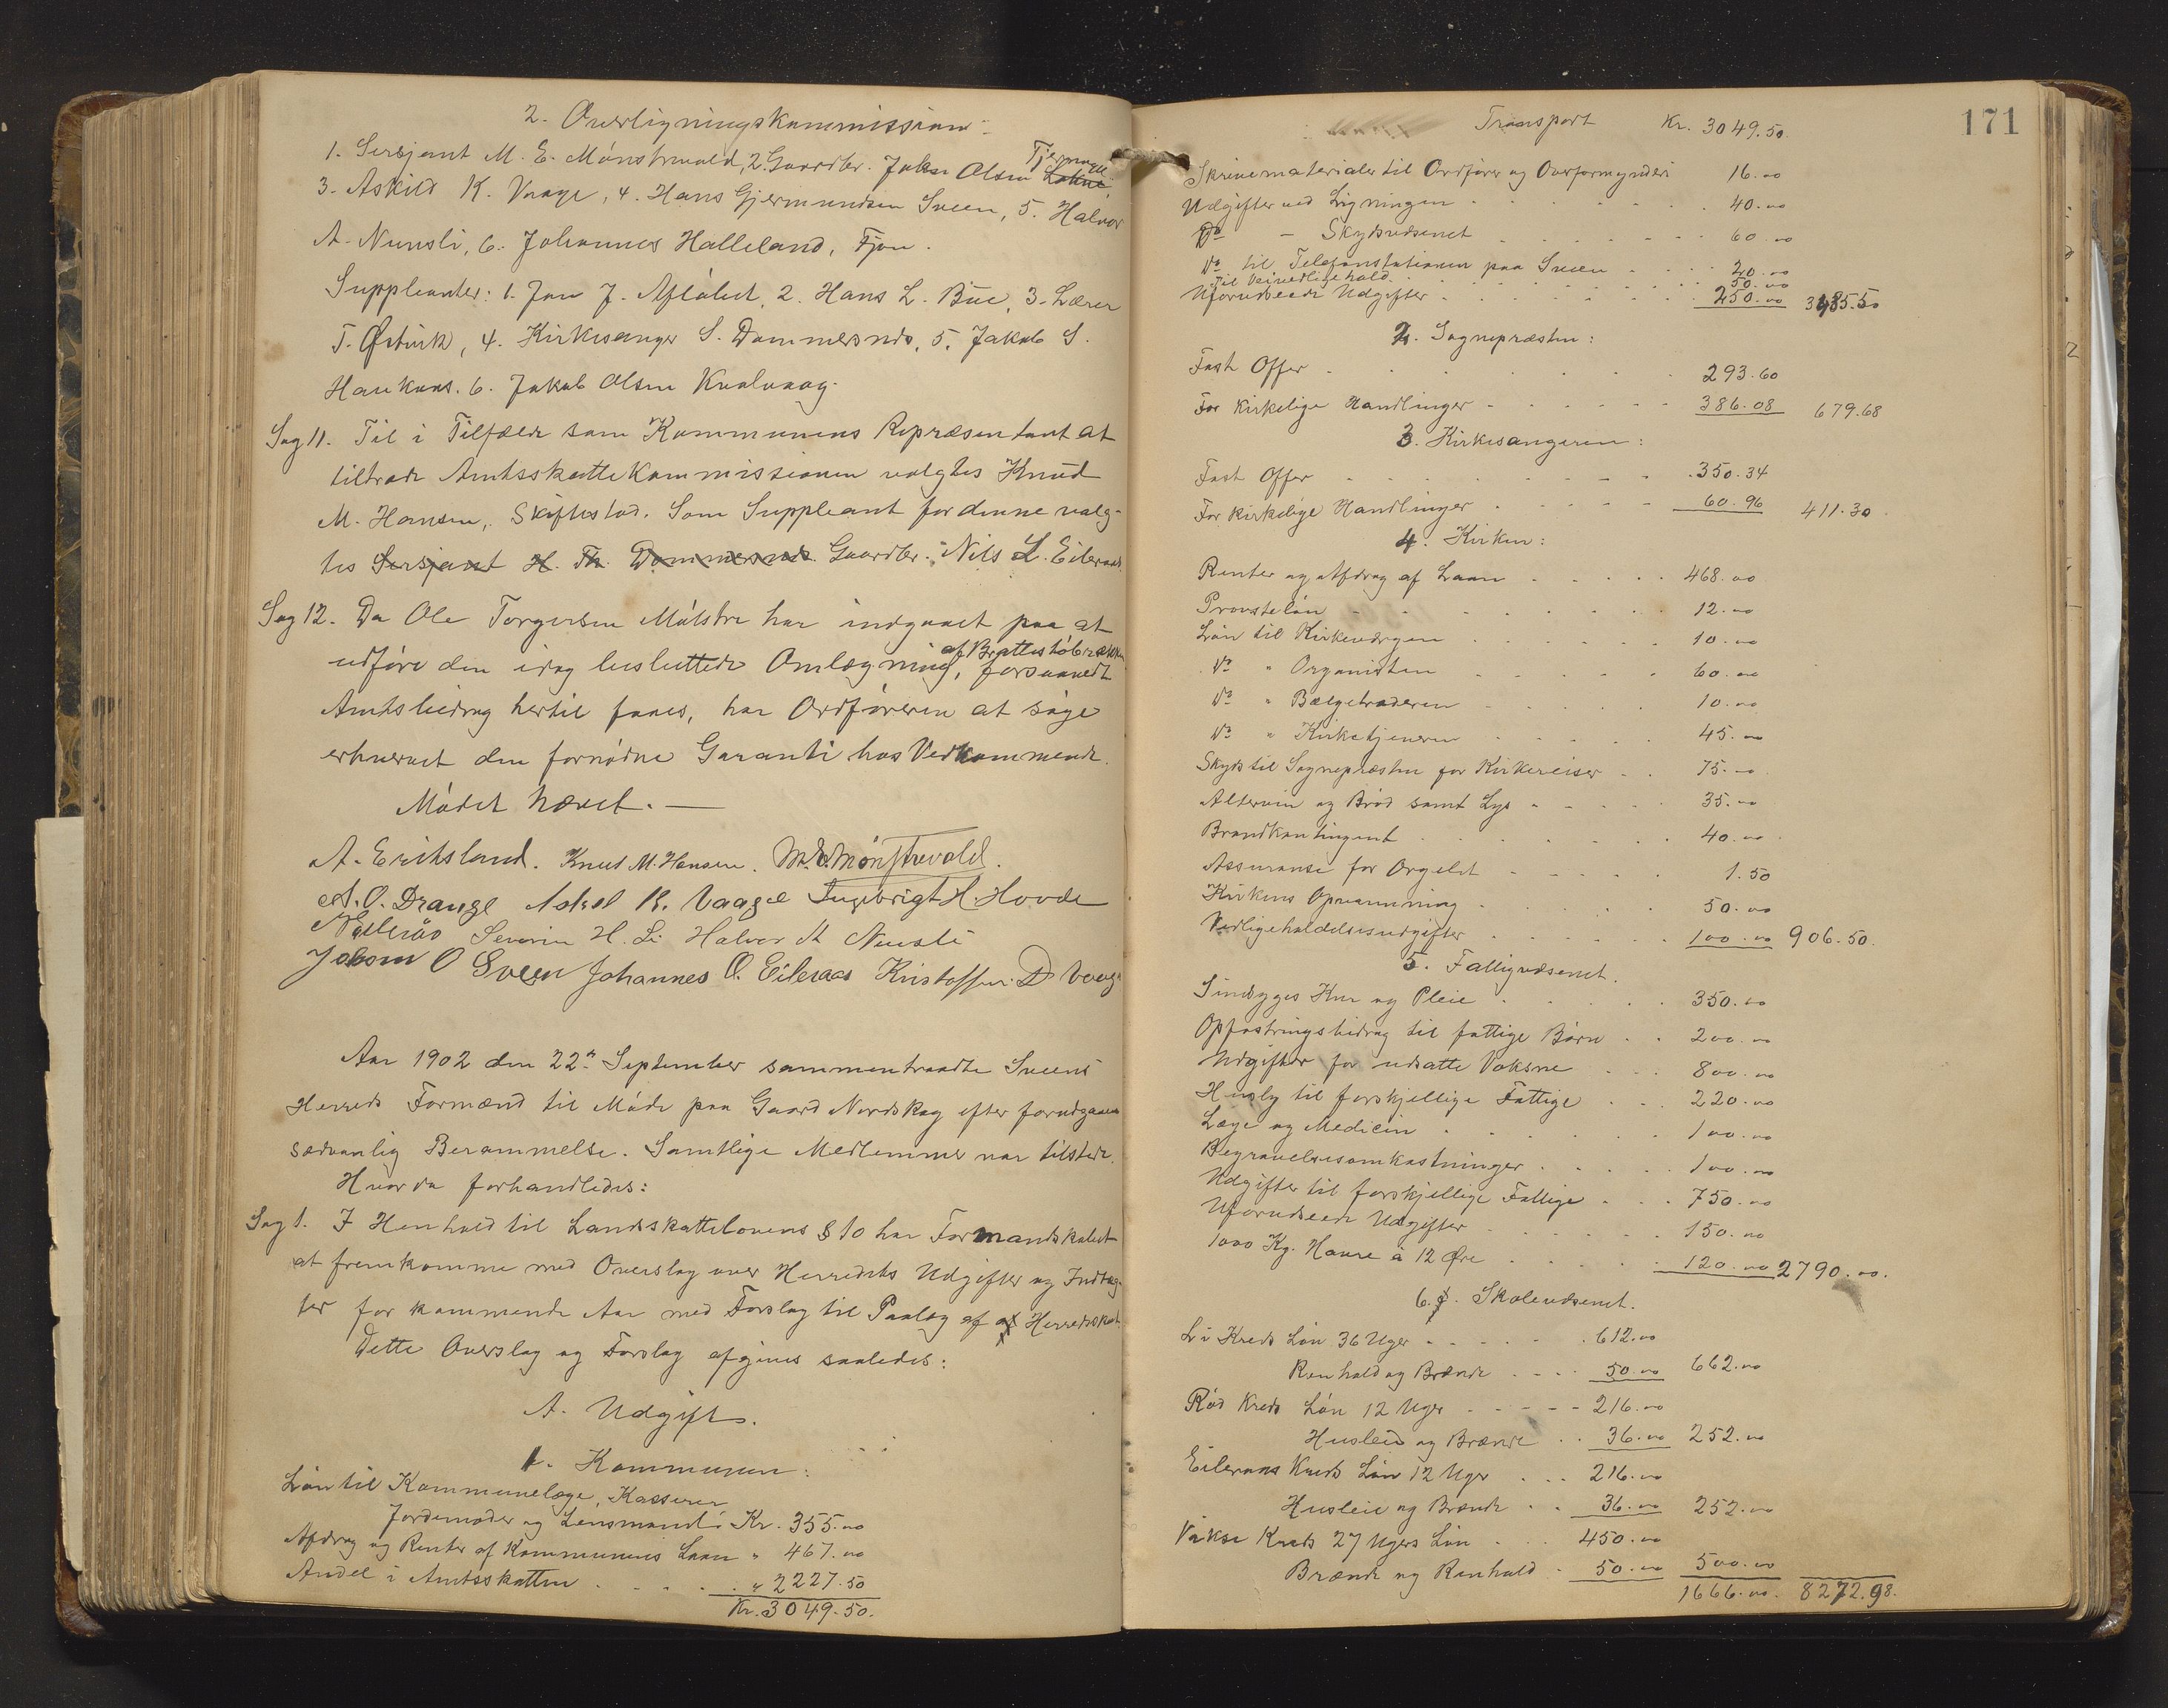 2. Overligningskommission:
1. Sersjant M. E. Mønstrevold, 2. Gaardbr. Jakob Olsen Tjernagel
3. Askild K. Vaage, 4. Hans Gjermundsen Sveen, 5. Halvor
A. Nunsli, 6. Johannes Halleland, Fjon.
Suppleanter: 1. Jon J. Apeland, 2. Hans L. Bue, 3. Lærer
T. Østvik, 4. Kirkesanger S. Dommersnes, 5. Jakob S.
Haukaas. 6. Jakob Olsen Kvalvaag.
Sag 11. Til i Tilfælde som Kommunens Repræsentant at
tiltræde Amtsskattekommissionen valgtes Knud
M. Hansen, Skiftestad. Som Suppleant for denne valg-
tes Sersjant H. Th. Dommersnes Gaardbr. Nils L. Eileraas.
Sag 12. Da Ole Torgersen Mølstre har indgaaet paa at
udføre den idag besluttede Omlægning af Brattestøbrekken, forsaavidt
Amtsbidrag hertil faaes, har Ordføreren at søge
erhvervet den fornødne Garanti hos Vedkommende.
Mødet hævet. —
A. Eriksland. Knut M. Hansen. M. E. Mønstrevold.
A. O. Drange Askel K. Vaage Ingebrigt H. Hovde
N Eileraas Severin H. Li Halvor A Nunsli
Johan O Sveen Johannes O. Eileraas Kristoffer D Vaage
Aar 1902 den 22de September sammentraadte Sveens
Herreds Formænd til Møde paa Gaard Nordskog efter forudgaaen
sædvanlig Berammelse. Samtlige Medlemmer var tilstede.
Hvor da forhandledes:
Sag 1. I Henhold til Landskattelovens § 10 har Formandskabet
at fremkomme med Overslag over Herredets Udgifter og Indtæg-
ter for kommende Aar med Forslag til Paalæg af Herredsskat.
Dette Overslag og Forslag afgives saaledes:
A. Udgift.
1. Kommunen:
Løn til Kommunelæge, Kasserer
Jordemoder og Lensmand Kr. 355.00
Afdrag og Renter af Kommunens Laan " 467.00
Andel i Amtsskatten " 2227.50
Kr. 3049.50.
171
Transport Kr. 3049.50.
Skrivematerialer til Ordfører og Overformynderi 16.00
Udgifter ved Ligningen 40.00
Do - Skydsvæsenet 60.00
Do til Telefonstationen paa Sveen 20.00
Til Veivedligehold 50.00
Uforudseede Udgifter 250.00 3485.50
2. Sognepræsten:
Fast Offer 293.60
For kirkelige Handlinger 386.08 679.68
3. Kirkesangeren:
Fast Offer 350.34
For kirkelige Handlinger 60.96 411.30
4. Kirken:
Renter og Afdrag af Laan 468.00
Provsteløn 12.00
Løn til Kirkeværgen 10.00
Do " Organisten 60.00
Do " Bælgetræderen 10.00
Do " Kirketjeneren 45.00
Skyds til Sognepræsten for Kirkereiser 75.00
Altervin og Brød samt Lys 35.00
Brandkontingent 40.00
Assuranse for Orgelet 1.50
Kirkens Opvarmning 50.00
Vedligeholdelsesudgifter 100.00 906.50.
5. Fattigvæsenet.
Sindsyges Kur og Pleie 350.00
Opfostringsbidrag til fattige Børn 200.00
Udgifter for udsatte Voksne 800.00
Husly til forskjellige Fattige 220.00
Læge og Medicin 100.00
Begravelsesomkostninger 100.00
Udgifter til forskjellige Fattige 750.00
Uforudseede Udgifter 150.00
1000 Kg. Havre à 12 Øre 120.00 2790.00.
6. Skolevæsenet.
Li Kreds Løn 36 Uger 612.00
Renhold og Brænde 50.00 662.00
Rød Kreds Løn 12 Uger 216.00
Husleie og Brænde 36.00 252.00
Eileraas Kreds Løn 12 Uger 216.00
Husleie og Brænde 36.00 252.00
Vikse Kreds 27 Ugers Løn 450.00
Brænde og Renhold 50.00 500.00
1666.00. 8272.98.